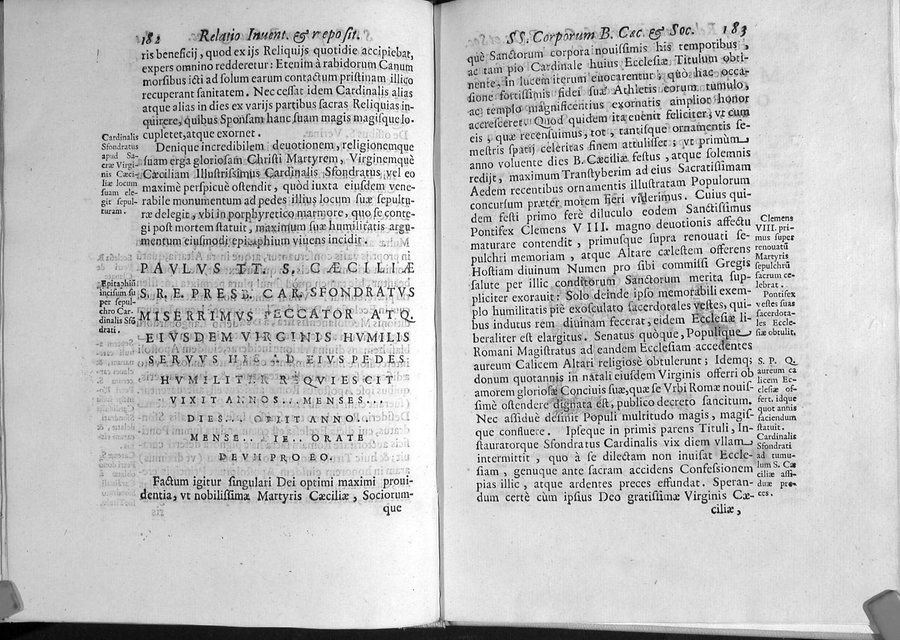 182 Relatio Invent. & reposit.
ris beneficij, quod ex ijs Reliquijs quotidie accipiebat,
expers omnino redderetur: Etenim à rabidorum Canum
morsibus icti ad solum earum contactum pristinam illico
recuperant sanitatem. Nec cessat idem Cardinalis alias
atque alias in dies ex varijs partibus sacras Reliquias in-
quirere, quibus Sponsam hanc suam magis magisque lo-
cupletet, atque exornet.
Denique incredibilem deuotionem, religionemque
suam erga gloriosam Christi Martyrem, Virginemque
Cæciliam Illustrissimus Cardinalis Sfondratus vel eo
maximè perspicuè ostendit, quòd iuxta eiusdem vene-
rabile monumentum ad pedes illius locum suæ sepultu-
ræ delegit, vbi in porphyretico marmore, quo se conte-
gi post mortem statuit, maximum suæ humilitatis argu-
mentum eiusmodi epitaphium viuens incidit.
Cardinalis
Sfondratus
apud Sa-
cræ Virgi-
nis Cæci-
liæ locum
suam ele-
git sepul-
turam.
PAVLVS TT. S. CÆCILIÆ
S. R. E. PRESB. CAR. SFONDRATVS
MISERRIMVS PECCATOR ATQ.
EIVSDEM VIRGINIS HVMILIS
SERVVS HIC AD EIVS PEDES
HVMILITER REQVIESCIT
VIXIT ANNOS... MENSES...
DIES... OBIIT ANNO..
MENSE.. DIE.. ORATE
DEVM PRO EO.
Epitaphiũ
incisum su
per sepul-
chro Car-
dinalis Sfõ
drati.
Factum igitur singulari Dei optimi maximi proui-
dentia, vt nobilissimæ Martyris Cæciliæ, Sociorum-
que
SS. Corporum B. Cæc. & Soc. 183
què Sanctorum corpora nouissimis his temporibus,
ac tam pio Cardinale huius Ecclesiæ Titulum obti-
nente, in lucem iterum euocarentur; quò hac occa-
sione fortissimis fidei suæ Athletis eorum tumulo,
ac templo magnificentius exornatis amplior honor
accresceret. Quod quidem ita euenit feliciter; vt cum
eis, quæ recensuimus, tot, tantisque ornamentis se-
mestris spatij celeritas finem attulisset; vt primùm
anno voluente dies B. Cæciliæ festus, atque solemnis
redijt, maximum Transtyberim ad eius Sacratissimam
Aedem recentibus ornamentis illustratam Populorum
concursum præter morem fieri viderimus. Cuius qui-
dem festi primo ferè diluculo eodem Sanctissimus
Pontifex Clemens VIII. magno deuotionis affectu
maturare contendit, primusque supra renouati se-
pulchri memoriam, atque Altare cælestem offerens
Hostiam diuinum Numen pro sibi commissi Gregis
salute per illic conditorum Sanctorum merita sup-
pliciter exorauit: Solo deinde ipso memorabili exem-
plo humilitatis piè exosculato sacerdotales vestes, qui-
bus indutus rem diuinam fecerat, eidem Ecclesiæ li-
beraliter est elargitus. Senatus quòque, Populique
Romani Magistratus ad eandem Ecclesiam accedentes
aureum Calicem Altari religiosè obtulerunt; Idemq;
donum quotannis in natali eiusdem Virginis offerri ob
amorem gloriosæ Conciuis suæ, quæ se Vrbi Romæ nouis-
simè ostendere dignata est, publico decreto sancitum.
Nec assiduè desinit Populi multitudo magis, magis-
que confluere. Ipseque in primis parens Tituli, In-
stauratorque Sfondratus Cardinalis vix diem vllam
intermittit, quo à se dilectam non inuisat Eccle-
siam, genuque ante sacram accidens Confessionem
pias illic, atque ardentes preces effundat. Speran-
dum certè cùm ipsius Deo gratissimæ Virginis Cæ-
ciliæ,
Clemens
VIII. pri-
mus super
renouatũ
Martyris
sepulchrũ
sacrum ce-
lebrat.
Pontifex
vestes suas
sacerdota-
les Eccle-
siæ obtulit.
S. P. Q.
aureum ca
licem Ec-
clesiæ of-
fert. idque
quot annis
faciendum
statuit.
Cardinalis
Sfondrati
ad tumu-
lum S. Cæ
ciliæ assi-
duæ pre-
ces.